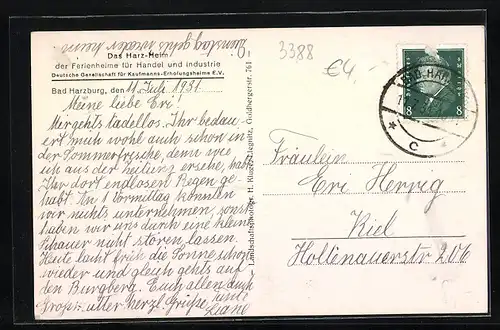 Samstag gehts wieder heim
Das Harz-Heim
der Ferienheime für Handel und Industrie
Deutsche Gesellschaft für Kaufmanns-Erholungsheime E.V.
Bad Harzburg, den 11. Juli 1931.
Meine liebe Eri!
Mir gehts tadellos. Ihr bedau-
ert mich wohl auch schon in
der Sommerfrische, denn wie
ich aus der Zeitung ersehe, habt
Ihr dort endlosen Regen ge-
habt. An 1 Vormittag konnten
wir nichts unternehmen, sonst
haben wir uns durch eine kleine
Schauer nicht stören lassen.
Heute lacht früh die Sonne schon
wieder und gleich gehts auf
den Burgberg. Euch allen, auch
Grop, aller herzl. Grüße
und
Liane
Goldbergerstr. 761
3388
€4,-
BAD HARZ
8
8
C
Fräulein
Eri Herrig
Kiel
Holtenauerstr 206